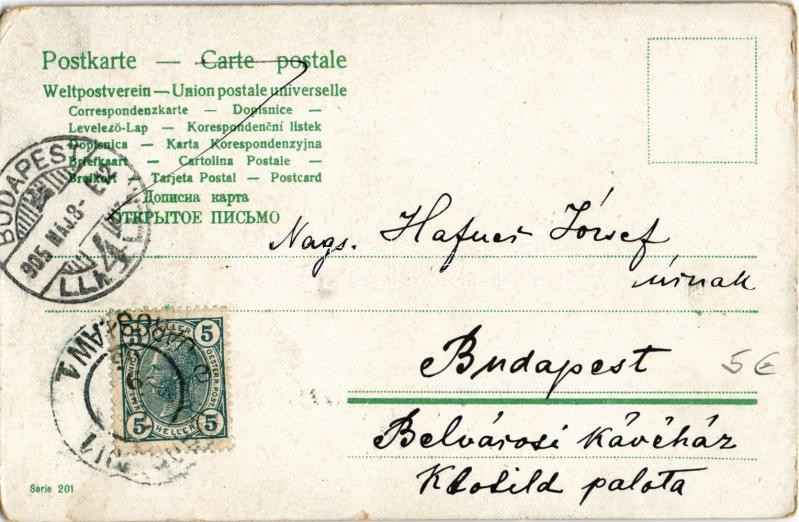 Postkarte — Carte postale
Weltpostverein — Union postale universelle
Correspondenzkarte — Dopisnice —
Levelező-Lap — Korespondenční listek
Dopisnica — Karta Korespondenzyjna
Briefkaart — Cartolina Postale —
Brefkort — Tarjeta Postal — Postcard
Дописна карта
ОТКРЫТОЕ ПИСЬМО
BUDAPEST
905 MÁJ. 8-
4
Nags. Hafner József
úrnak
5 HELLER 5
OESTERR. POST
5 HELLER 5
Budapest
5€
Belvárosi kávéház
Klotild palota
Serie 201